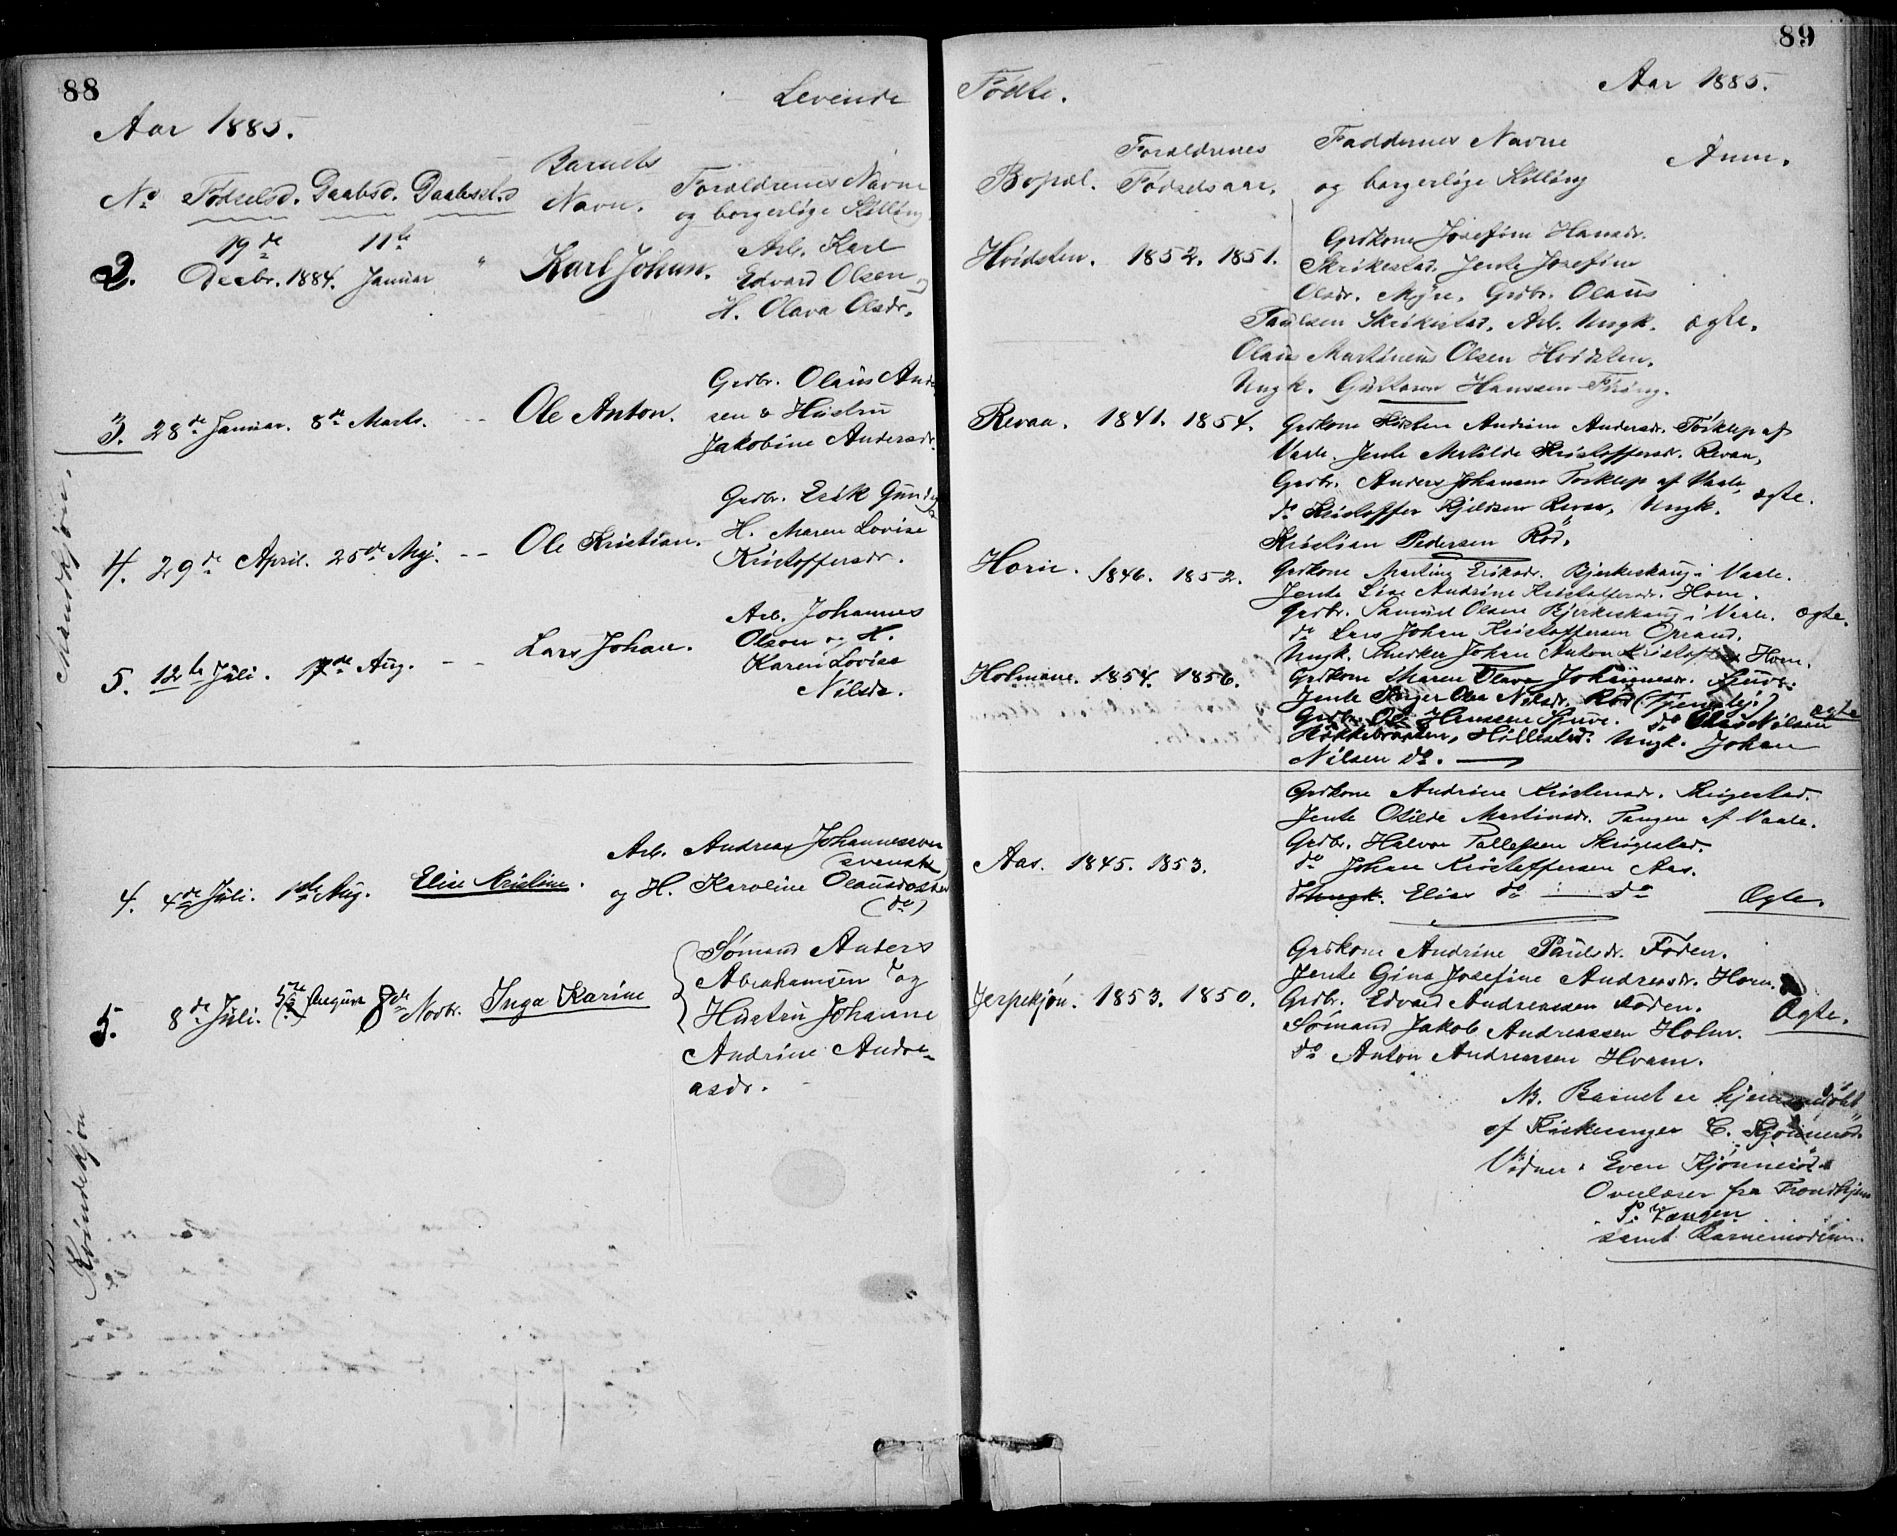 88
Levende
Aar 1885.
No Fødselsd. Daabsd. Daabsst.
Barnets Navn.
Forældrenes Navne
og borgerlige Stilling
Mandkjøn.
2. 19de Decbr. 1884. 11te Januar " Karl Johan.
Arb. Karl
Edvard Olsen
H. Olava Olsdr.
3. 28de Januar. 8de Marts. -- Ole Anton.
Grdbr. Olaus
sen & Hustru
Jakobine Andersdr.
4. 29de April. 25de Mai. -- Ole Kristian.
Grdbr. Erik
H. Maren Lovise
Kristoffersdr.
5. 12te Juli. Aug. -- Lars Johan.
Arb. Johannes
Olsen og H.
Karen Lovise
Nilsdr.
Kvindekjøn
4. 4de Juli. Aug. Elise Kristine.
Arb. Andreas Johannessen
(svenske)
og H. Karoline Olausdatter
(do)
5. 8de Juli. August 8de Novbr. Inga Karine
Sømand Anders
Abrahamsen og
Hustru Johanne
Andrine Andre-
asdr.
89
Fødte.
Aar 1885.
Bopæl.
Forældrenes
Fødselsaar.
Faddernes Navne
og borgerlige Stilling
Anm.
Hvidsten. 1852. 1851.
Grdkone Josefine Hansdr.
Skrikestad. Jente Josefine
Olsdr. Myre. Grdbr. Olaus
Paulsen Skrikestad. Arb. Ungk. ægte.
Olaus Martinius Olsen Hvidsten.
Ungk. Gustav Hanssen
Revaa. 1841. 1854.
Grdkone Andrine Andersdr. Torklep af
Vaale. Jente Matilde Kristoffersdr. Revaa,
Grdbr. Anders Johansen Torklep af Vaale, ægte.
do Kristoffer Kjeldsen Revaa, Ungk.
Kristian Pedersen Rød.
Horn. 1846. 1852.
Grdkone Martine Eriksdr. Bjerkeskaug i Vaale.
Jente Lise Andrine Kristoffersdr. Horn.
Grdbr. Samuel Olsen Bjerkeskaug i Vaale. ægte.
do Lars Johan Kristoffersen
Ungk. Snedker Johan Anton Kristoffersen Horn.
Holmane. 1854. 1856.
Grdkone Maren Olava Johannesdr.
Jente Olea Nilsdr. Rød
Grdbr. Ole Hanssen do Nilsen ægte
Hillestad. Ungk. Johan
Nilsen do.
Aas. 1845. 1853.
Grdkone Andrine Kristensdr.
Jente Otilde Martinsdr. Tangen af Vaale.
Grdbr. Halvor Tollefsen
do Johan Kristoffersen Aas.
do Ungk. Elias do — do Ægte.
Jerpekjøn. 1853. 1850.
Grdkone Andrine Paulsdr. Foden.
Jente Gina Josefine Andreasdr. Horn.
Grdbr. Edvard Andreassen Foden. Ægte.
Sømand Jakob Andreassen Holm.
do Anton Andreassen Hvam.
NB. Barnet er hjemmedøbt
af Kirkesanger C. Kjønnerød.
Vidner: Even Kjønnerød
fra Trondhjem
samt Barnemoderen.